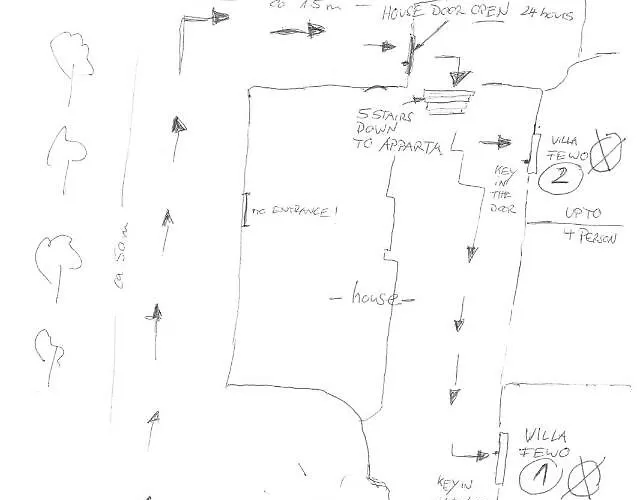 ca 15m
HOUSE DOOR OPEN 24 hours
5 STAIRS
DOWN
TO APPARTM.
VILLA
FEWO
2
KEY
IN
THE
DOOR
NO ENTRANCE!
UP TO
4 PERSON
ca 50m
- house -
VILLA
FEWO
1
KEY IN